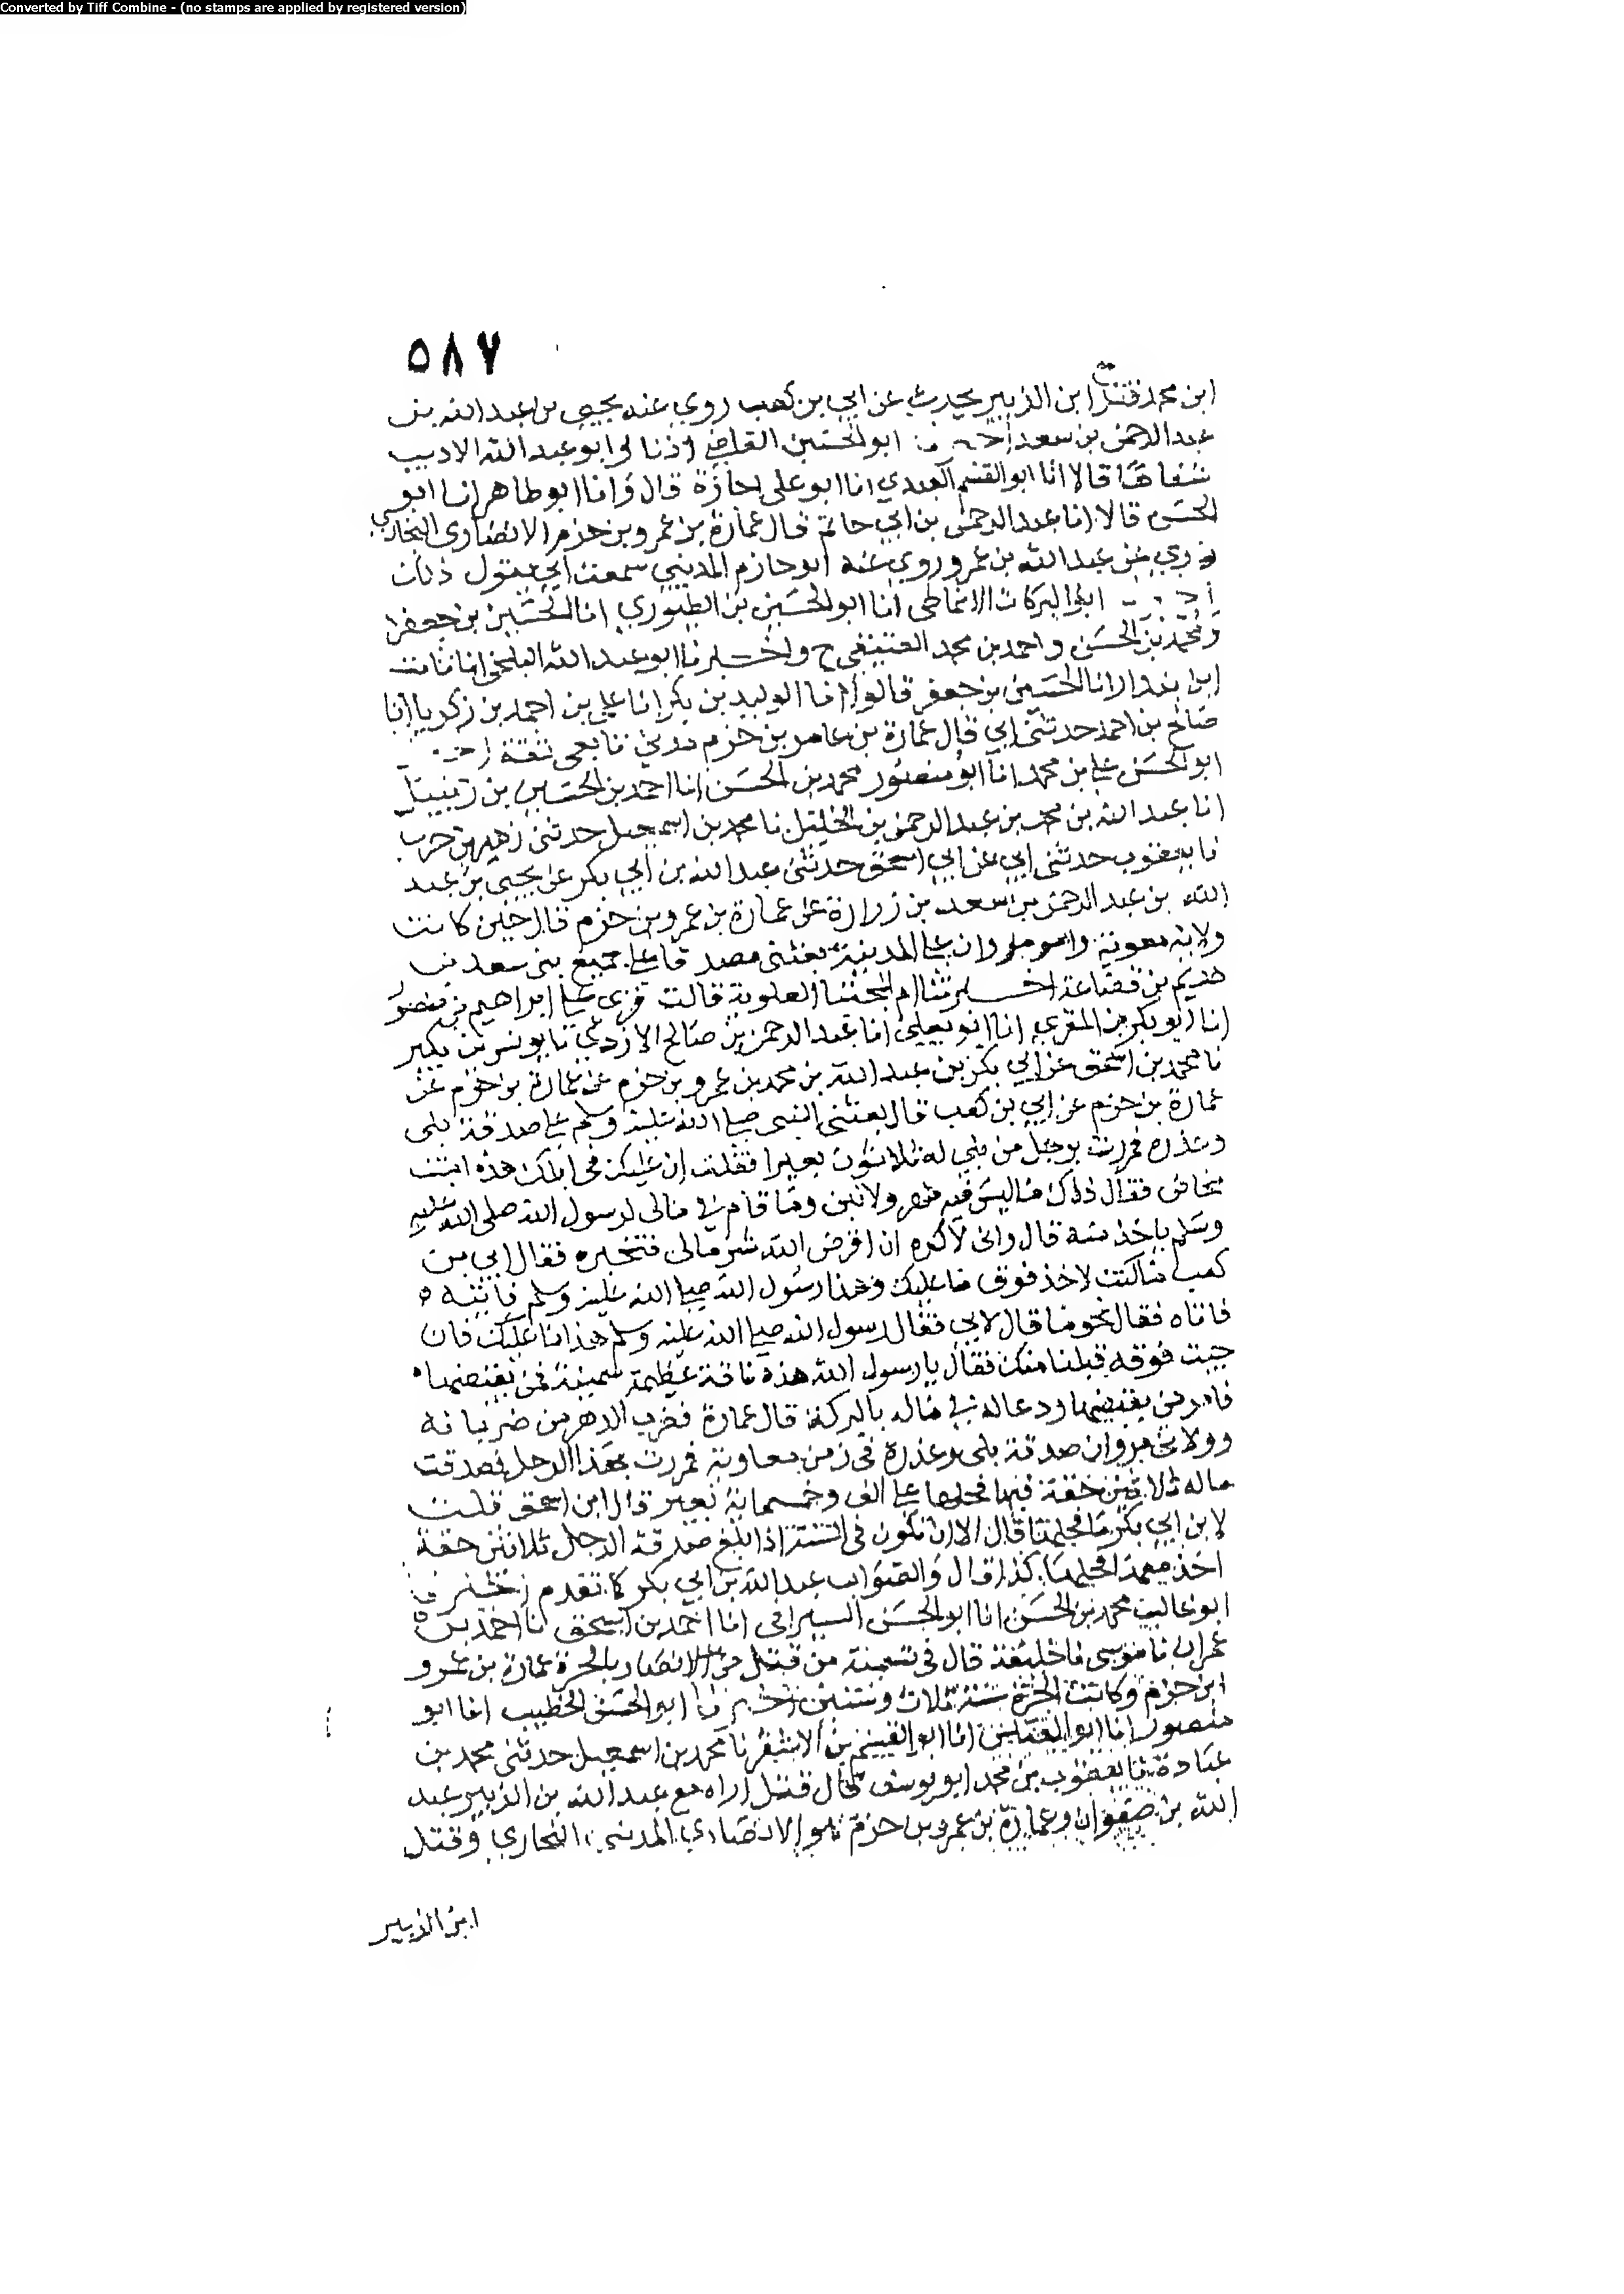 Converted by Tiff Combine - (no stamps are applied by registered version)
٥٨٧
ابن محمد قتل مع ابن الزبير يحدث عن ابي بن كعب روى عنه يحيى بن عبد الله بن
عبد الرحمن بن سعد ابو الحسين القاضي اذنا وابو عبد الله الاديب
شفاها قالا انا ابو القسم العبدي انا ابو علي اجازة قال وانا ابو طاهر انا ابو
الحسن قالا انا عبد الرحمن بن ابي حاتم قال عمارة بن عمرو بن حزم الانصاري النجاري
روى عن عبد الله بن عمرو روى عنه ابو حازم المديني سمعت ابي يقول ذلك
ابو البركات الانماطي انا ابو الحسين بن الطيوري انا الحسين بن جعفر
ومحمد بن الحسن واحمد بن محمد العتيقي ح واخبرنا ابو عبد الله البلخي انا ثابت
ابن بندار انا الحسين بن جعفر قالوا انا الوليد بن بكر انا علي بن احمد بن زكريا انا
صالح بن احمد حدثني ابي قال عمارة بن عامر بن حزم مدني تابعي ثقة
ابو الحسن علي بن محمد انا ابو منصور محمد بن الحسن انا احمد بن الحسين بن زنبيل
انا عبد الله بن محمد بن عبد الرحمن بن الخليل نا محمد بن اسمعيل حدثني زهير بن حرب
نا يعقوب حدثني ابي عن ابي اسحق حدثني عبد الله بن ابي بكر عن يحيى بن عبد
الله بن عبد الرحمن بن اسعد بن زرارة عن عمارة بن عمرو بن حزم قال حين كانت
ولاية معوية وامر مروان على المدينة بعثني مصدقا على جميع بني سعد بن
هديم بن قضاعة اخبرتنا ام المجتبا العلوية قالت قرئ على ابراهيم بن منصور
انا ابو بكر بن المقرئ انا ابو يعلى انا عبد الرحمن بن صالح الازدي نا يونس بن بكير
نا محمد بن اسحق عن ابي بكر بن عبد الله بن محمد بن عمرو بن حزم عن عمارة بن حزم عن
عمارة بن حزم عن ابي بن كعب قال بعثني النبي صلى الله عليه وسلم على صدقة بلى
وعذرة فمررت برجل من بلي له ثلاثون بعيرا فقلت ان عليك في ابلك هذه ابنت
مخاض فقال ذاك ما ليس فيه ظهر ولا لبن وما قام في مالى لرسول الله صلى الله عليه
وسلم ياخذ منه قال واني لاكره ان اقرض الله شر مالى فتخيره فقال ابي بن
كعب ما كنت لاخذ فوق ما عليك وهذا رسول الله صلى الله عليه وسلم فأتيه ه
فاتاه فقال نحو ما قال لابي فقال رسول الله صلى الله عليه وسلم هذا ما عليك فان
جيت فوقه قبلنا منك فقال يا رسول الله هذه ناقة عظيمة سمينة فمن يقبضها ه
فامر من يقبضها ودعا له في ماله بالبركة قال عمارة فضرب الدهر من ضربانه
وولاني مروان صدقة بلى وعذرة في زمن معاوية فمررت بهذا الرجل فصدقت
ماله ثلاثين حقة فيها فحلها على الف وخمسماية بعير قال ابن اسحق قلت
لابن ابي بكر ما فحلها قال الا ان تكون في السنة اذا بلغ صدقة الرجل ثلاثين حقة
اخذ معها فحلها كذا قال والصواب عبد الله بن ابي بكر كما تقدم
ابو غالب محمد بن الحسن انا ابو الحسن السيرافي انا احمد بن اسحق نا احمد بن
عمران نا موسى نا خليفة قال في تسمية من قتل من الانصار بالحرة عمارة بن عمرو
ابن حزم وكانت الحرة سنة ثلاث وستين اخبرنا ابو الحسن الخطيب انا ابو
منصور انا ابو العباس انا ابو القسم بن الاشقر نا محمد بن اسمعيل حدثني محمد بن
عبادة نا يعقوب بن محمد ابو يوسف قال قتل اراه مع عبد الله بن الزبير عبد
الله بن صفوان وعمارة بن عمرو بن حزم هو الانصاري المدني النجاري وقتل
ابن الزبير